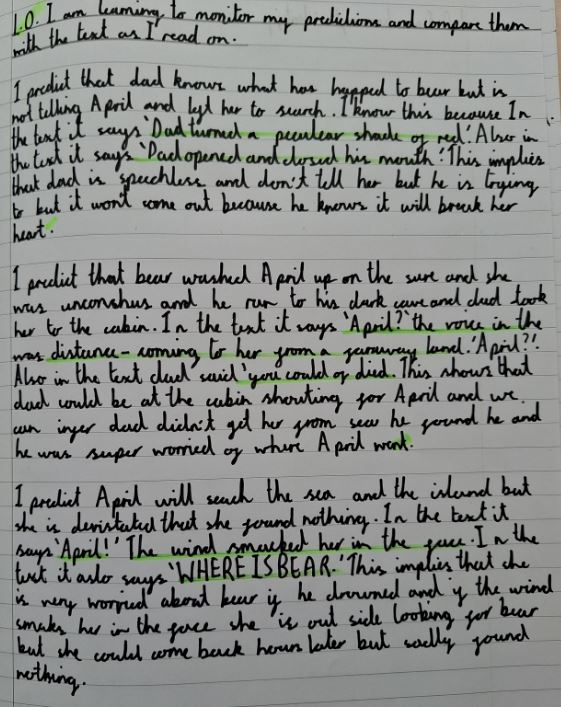 L.O. I am learning to monitor my predictions and compare them
with the text as I read on.
I predict that dad knows what has happed to bear but is
not telling April and left her to search. I know this because In
the text it says 'Dad turned a peculear shade of red.' Also in
the text it says 'Dad opened and closed his mouth.' This implies
that dad is speechless and don't tell her but he is trying
to but it wont come out because he knows it will break her
heart.
I predict that bear washed April up on the sure and she
was unconshus and he run to his dark cave and dad took
her to the cabin. In the text it says 'April?' the voice in the
was distance - coming to her from a faraway land. 'April?!'
Also in the text dad said 'you could of died. This shows that
dad could be at the cabin shouting for April and we
can infer dad didn't get her from sea he found he and
he was super worried of where April went.
I predict April will seach the sea and the island but
she is devistated that she found nothing. In the text it
says 'April!' The wind smacked her in the face. In the
text it aslo says 'WHERE IS BEAR.' This implies that she
is very worried about bear if he drowned and if the wind
smaks her in the face she is out side looking for bear
but she could come back hours later but sadly found
nothing.